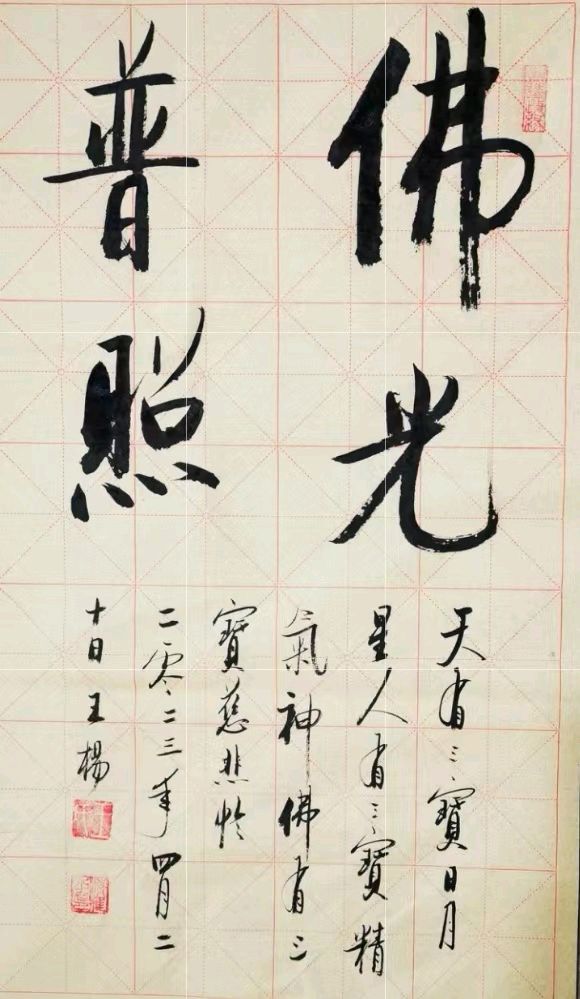 佛光
普照
天有三寶日月
星人有三寶精
氣神佛有三
寶慈悲憐
二零二三年四月二
十日王楊